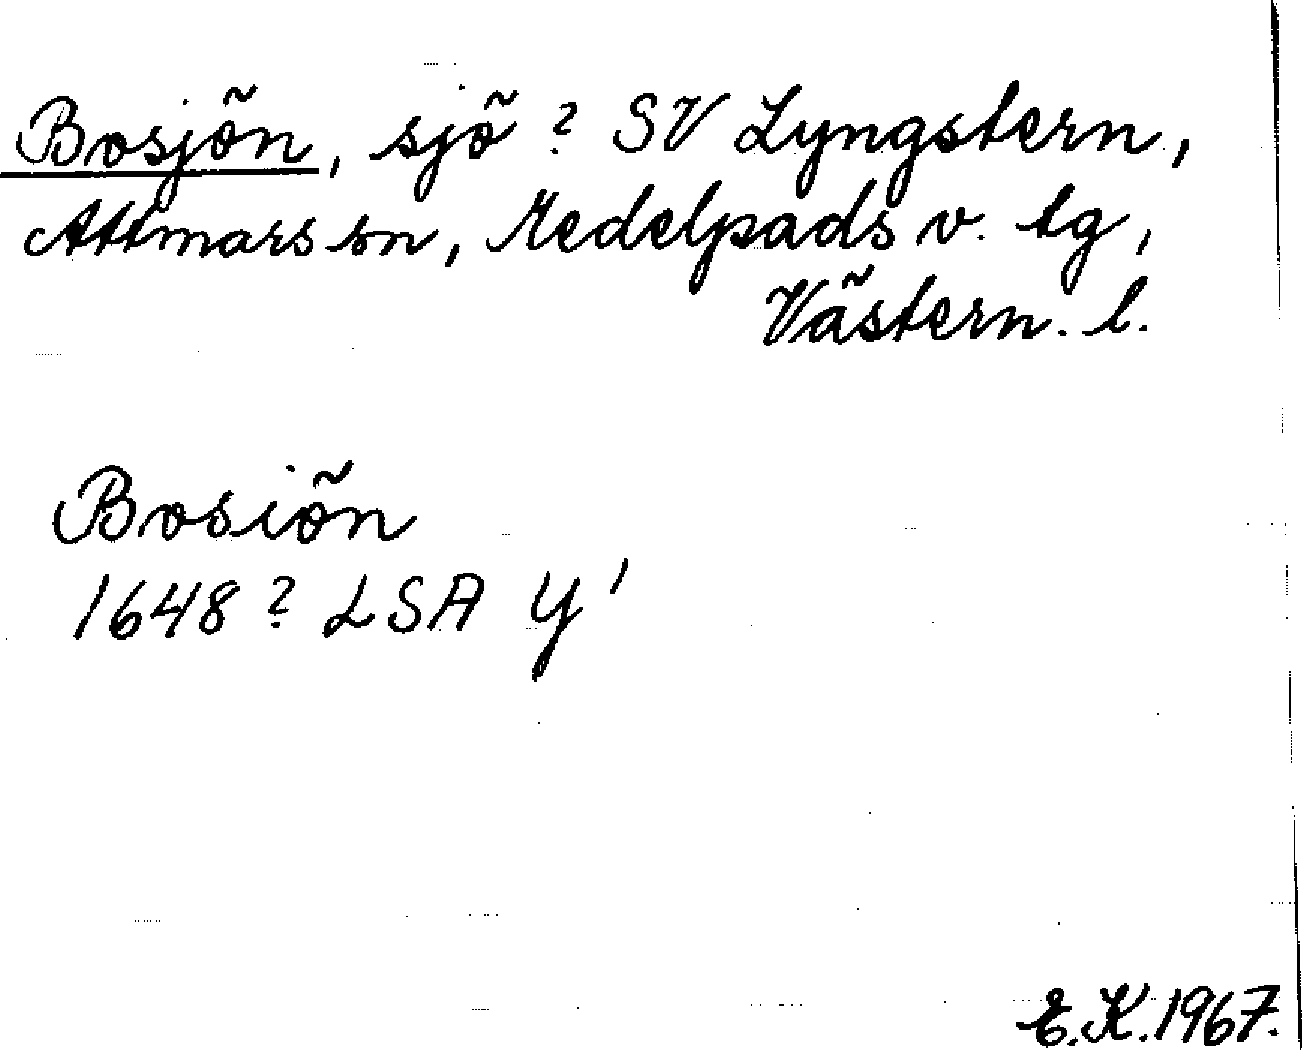 Bosjön, sjö ? SV Lyngstern,
Attmars sn, Medelpads v. tg,
Västern. l.
Bosiön
1648 ? LSA Y'
E.K. 1967.